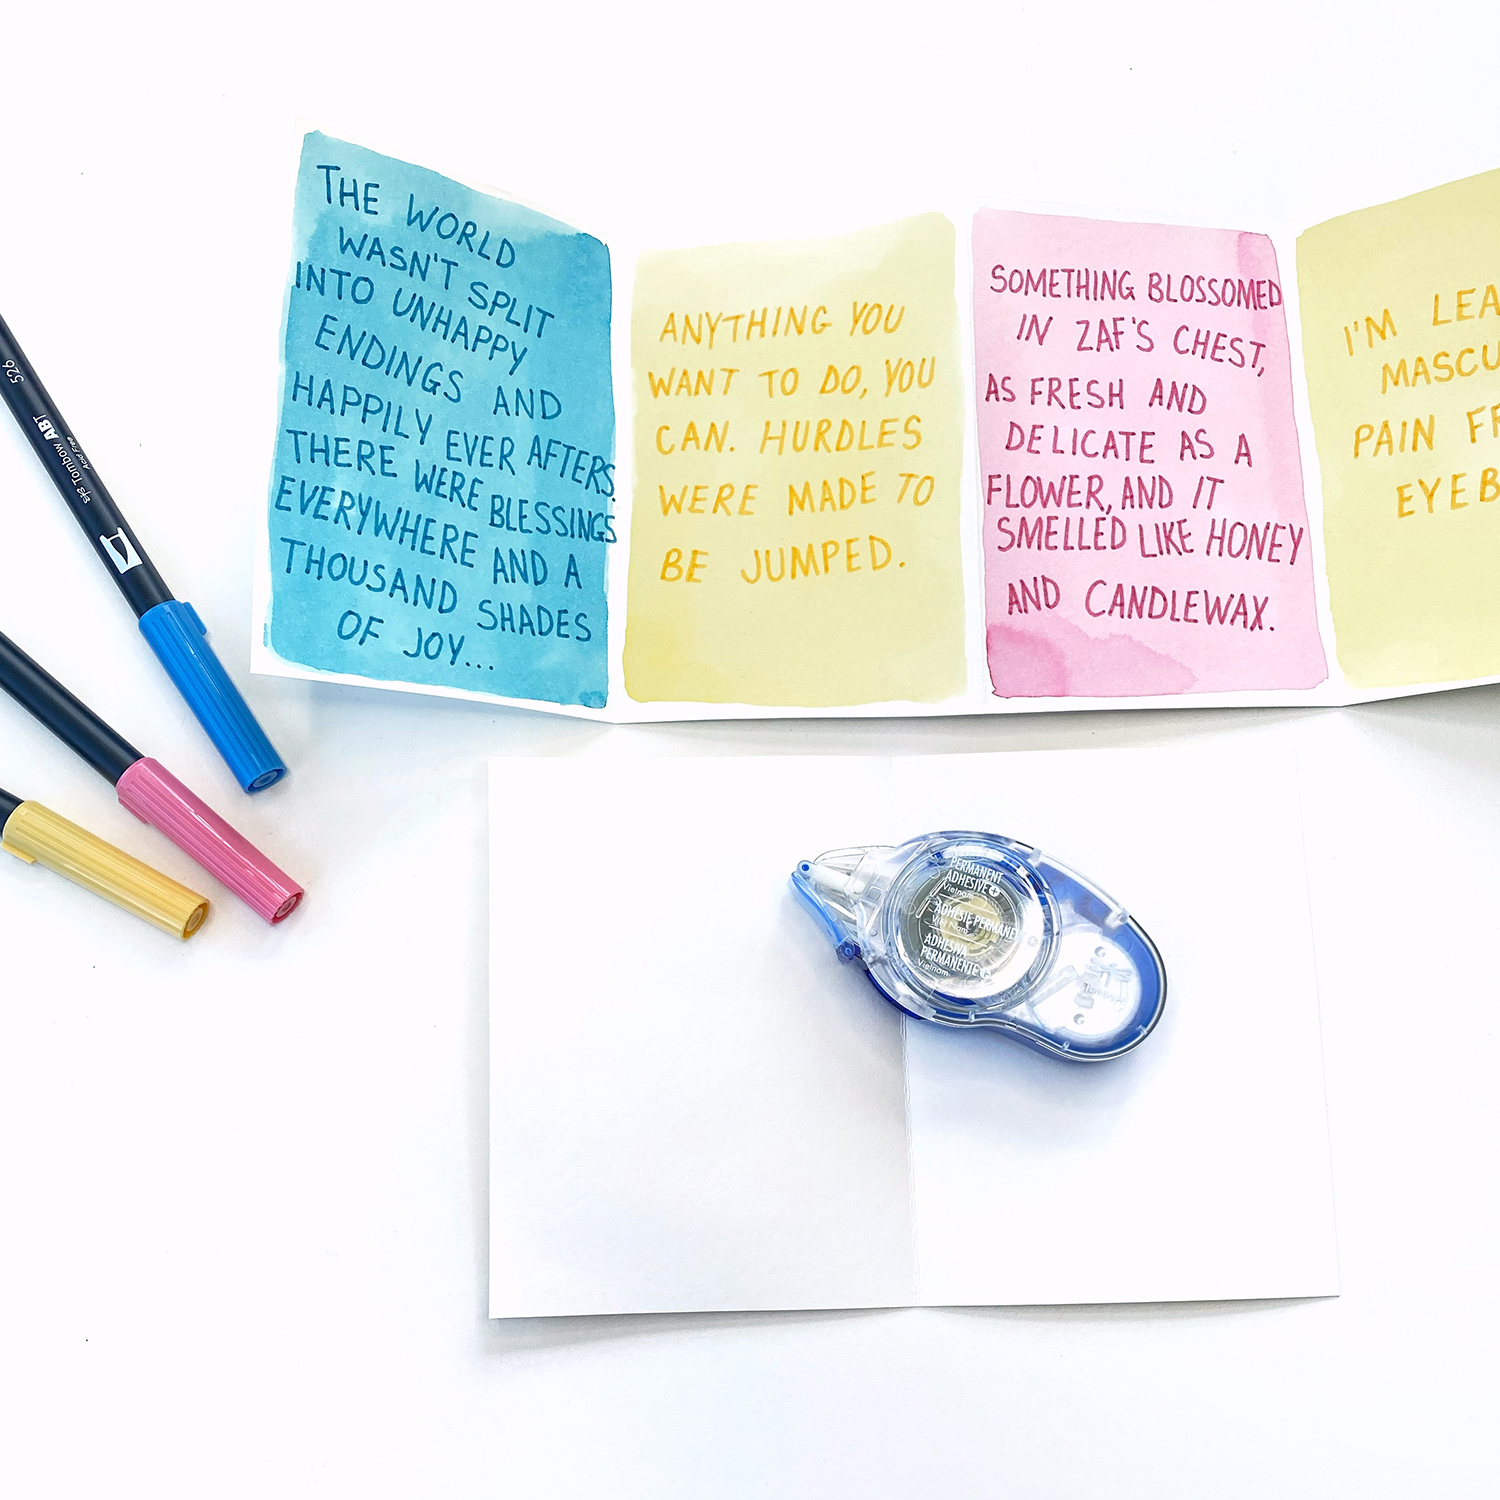 THE WORLD
WASN'T SPLIT
INTO UNHAPPY
ENDINGS AND
HAPPILY EVER AFTERS.
THERE WERE BLESSINGS
EVERYWHERE AND A
THOUSAND SHADES
OF JOY...
ANYTHING YOU
WANT TO DO, YOU
CAN. HURDLES
WERE MADE TO
BE JUMPED.
SOMETHING BLOSSOMED
IN ZAF'S CHEST,
AS FRESH AND
DELICATE AS A
FLOWER, AND IT
SMELLED LIKE HONEY
AND CANDLEWAX.
I'M LEA
MASCU
PAIN FR
EYEB
526
Tombow ABT
Acid Free
PERMANENT
ADHESIVE
Vietnam
ADHÉSIF PERMANE
Viet Nam
ADHESIVA
PERMANENTE
Vietnam